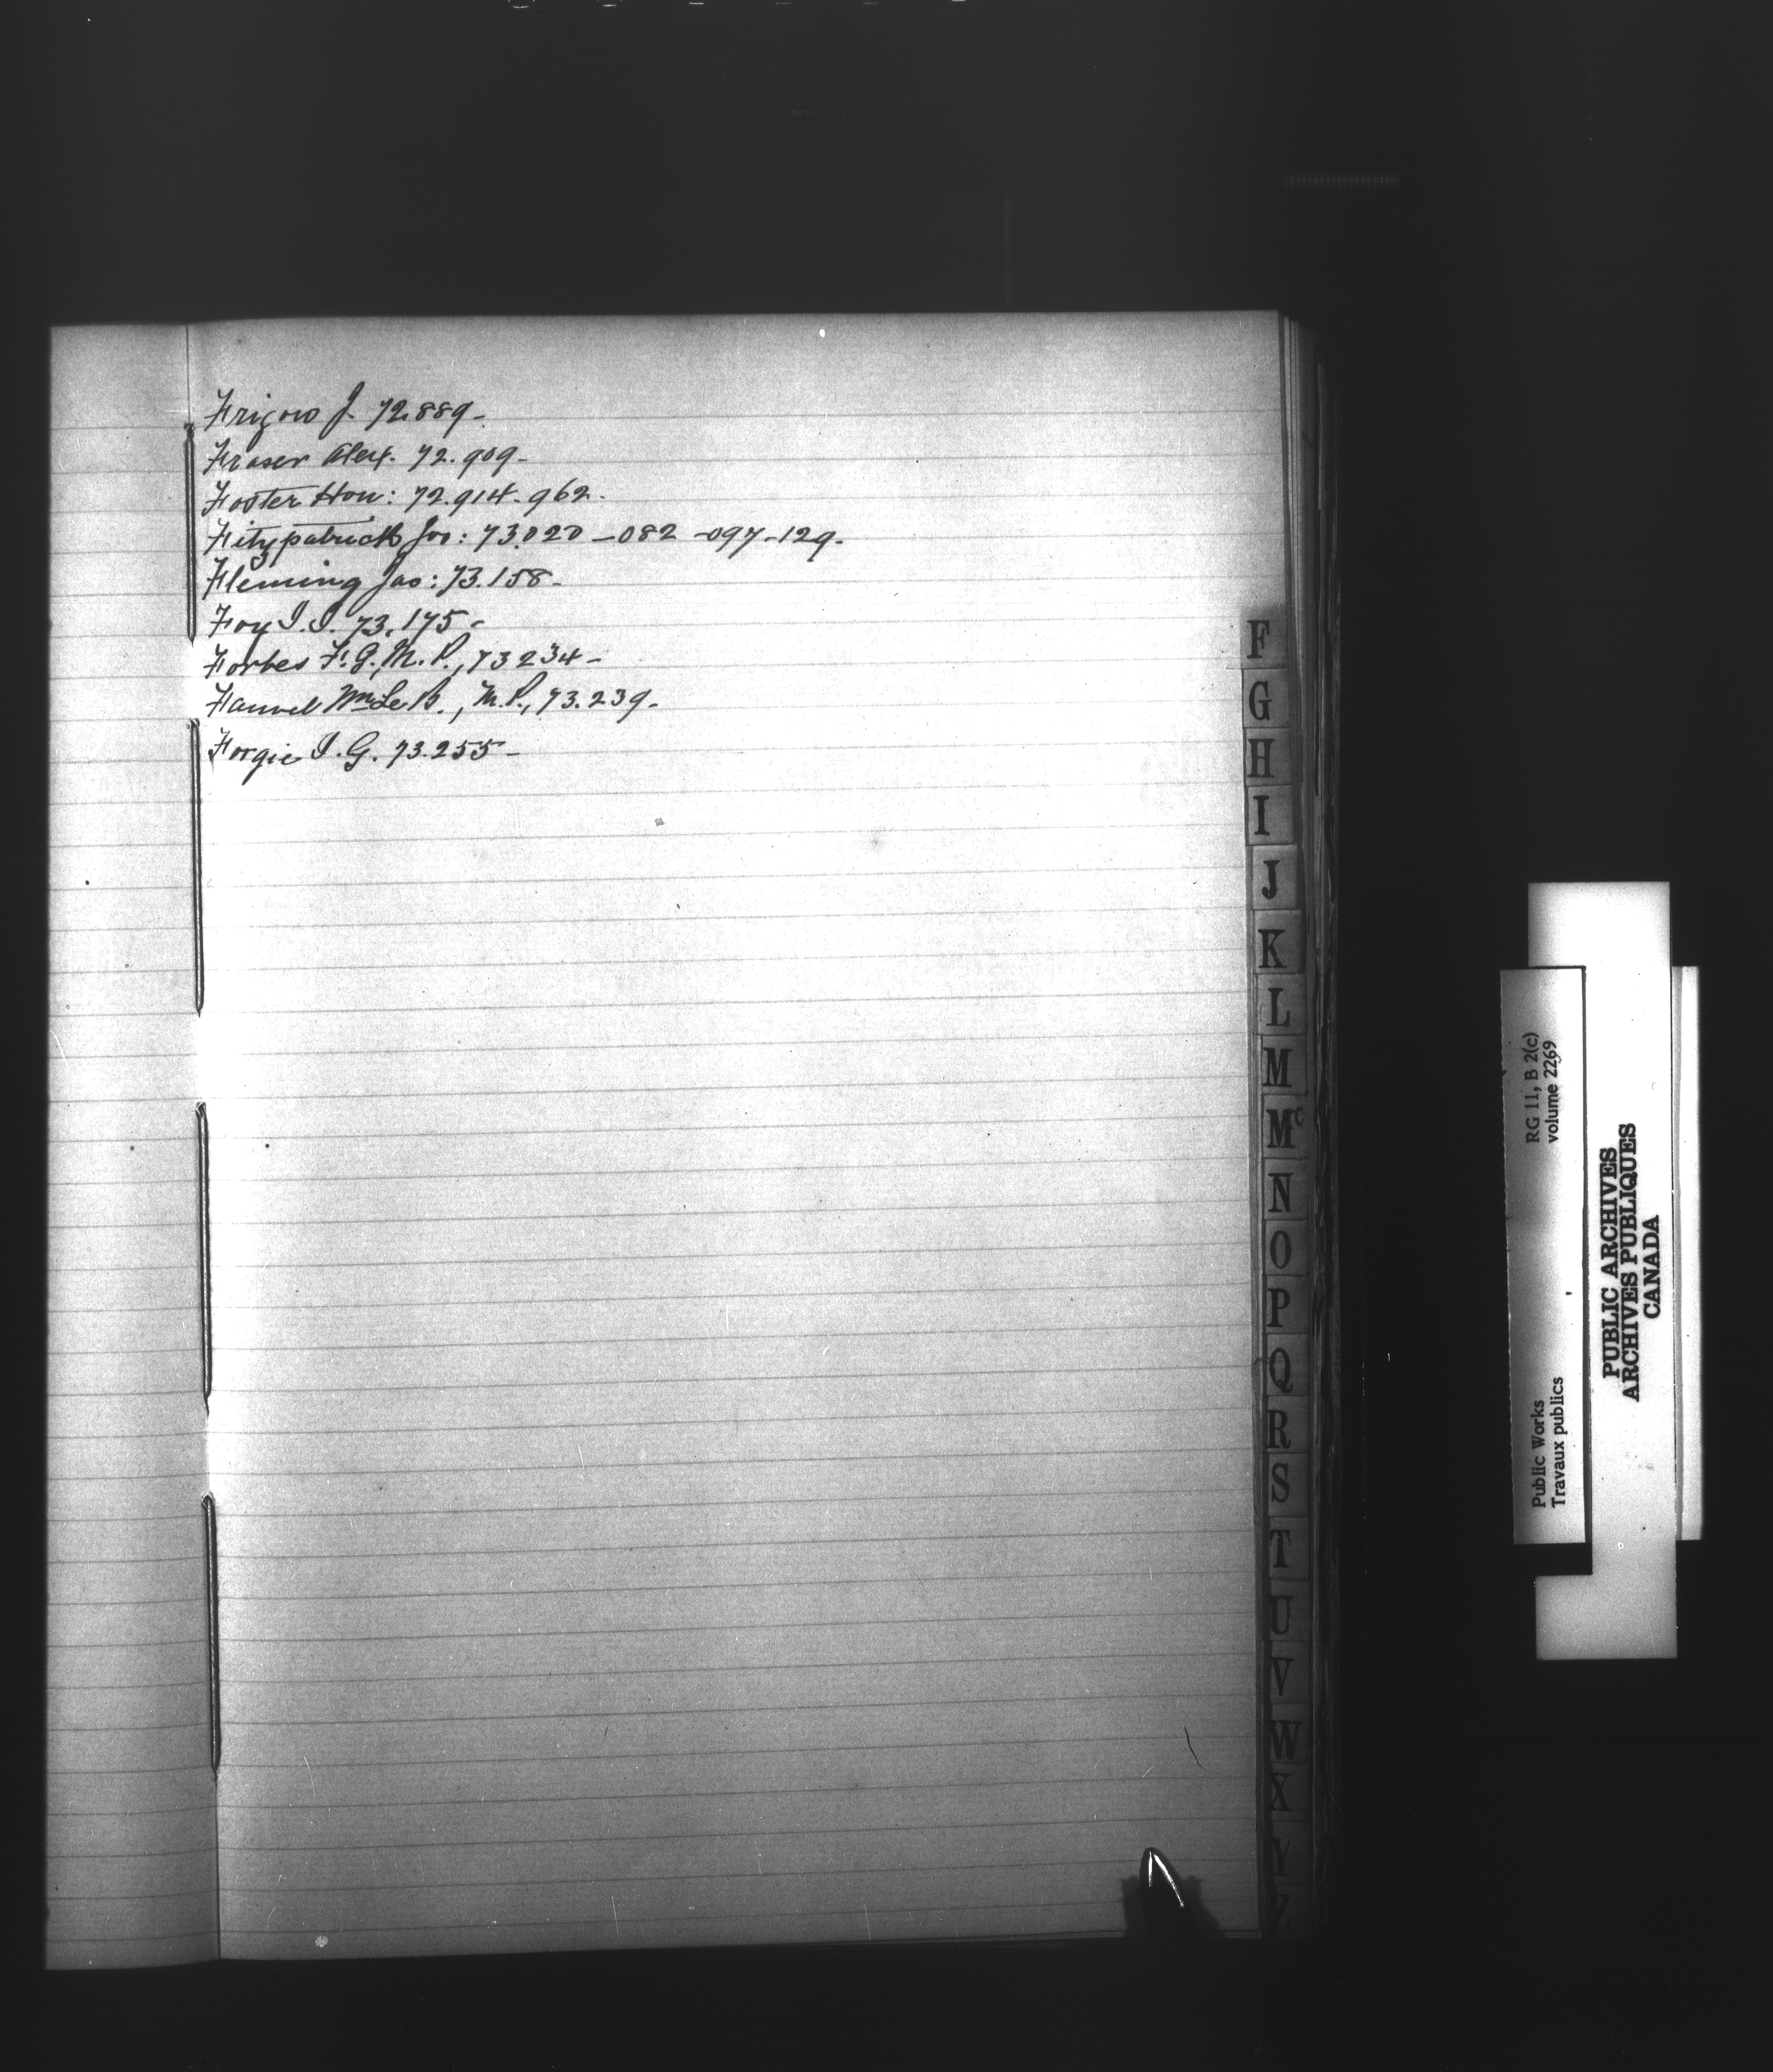 Frigon J. 72.889-
Fraser Alex. 72.909-
Foster Hon: 72.914-962-
Fitzpatrick Jos: 73.020-082-097-129-
Fleming Jas: 73.158-
Foy J.J. 73.175-
Forbes F.G., M.P., 73234-
Fauvel Wm Le B., M.P., 73.239-
Forgie J.G. 73.255-
F
G
H
I
J
K
L
M
Mc
N
O
P
Q
R
S
T
U
V
W
X
Y
Z
RG 11, B 2(c)
volume 2269
Public Works
Travaux publics
PUBLIC ARCHIVES
ARCHIVES PUBLIQUES
CANADA